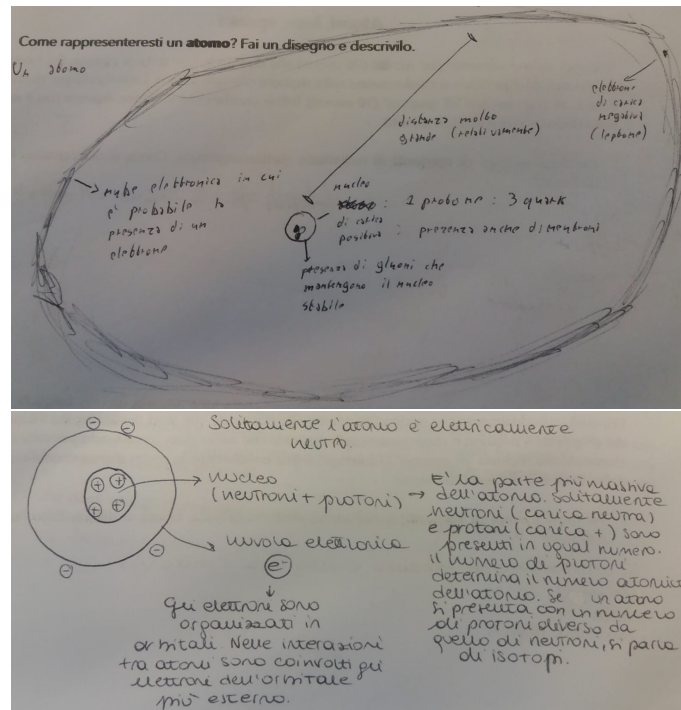 Come rappresenteresti un atomo? Fai un disegno e descrivilo.
Un atomo
elettrone
di carica
negativa
(leptone)
distanza molto
grande (relativamente)
nube elettronica in cui
e' probabile la
presenza di un
elettrone
nucleo
di carica
positiva
: 1 protone : 3 quark
: presenza anche di neutroni
presenza di gluoni che
mantengono il nucleo
stabile
Solitamente l'atomo è elettricamente
neutro.
nucleo
(neutroni + protoni)
E' la parte più massiva
dell'atomo. Solitamente
neutroni (carica neutra)
e protoni (carica +) sono
presenti in ugual numero.
Il numero di protoni
determina il numero atomico
dell'atomo. Se un atomo
si presenta con un numero
di protoni diverso da
quello di neutroni, si parla
di isotopi.
nuvola elettronica
e-
Gli elettroni sono
organizzati in
orbitali. Nelle interazioni
tra atomi sono coinvolti gli
elettroni dell'orbitale
più esterno.